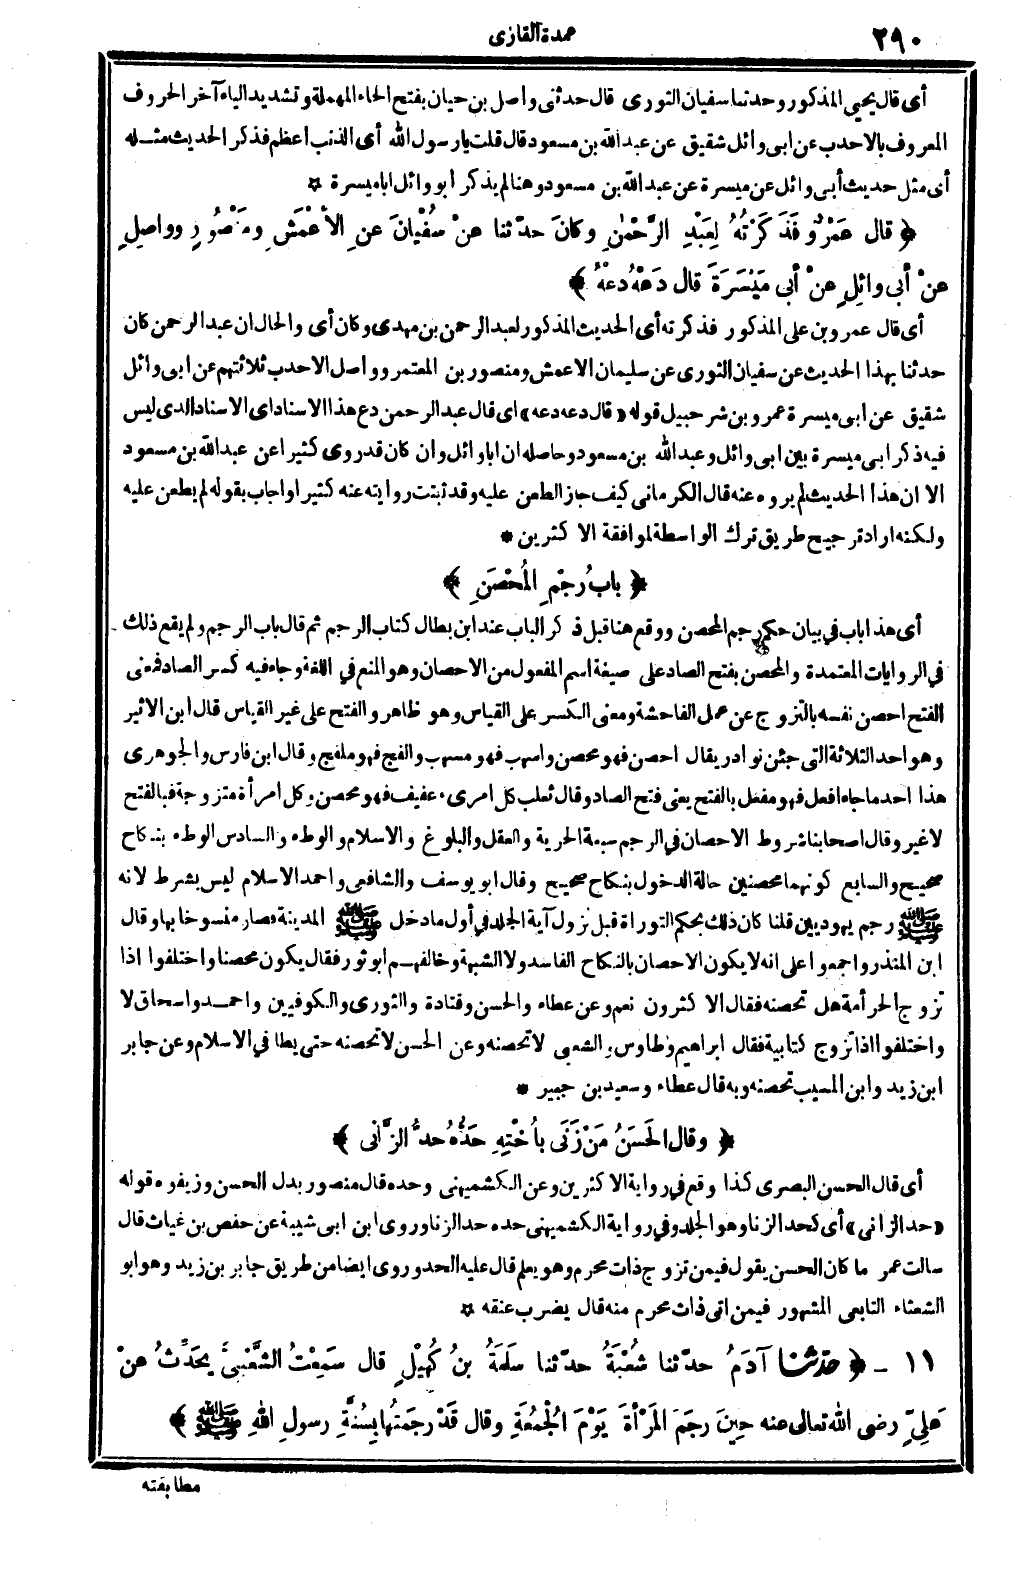 ٢٩٠
عمدة القارى
أى قال يحيى المذكور وحدثنا سفيان الثورى قال حدثنى واصل بن حيان بفتح الحاء المهملة وتشديد الياء آخر الحروف
المعروف بالاحدب عن ابى وائل شقيق عن عبد الله بن مسعود قال قلت يارسول الله أى الذنب اعظم فذكر الحديث مثله
أى مثل حديث أبى وائل عن ميسرة عن عبد الله بن مسعود وهنا لم يذكر ابو وائل ابا ميسرة ✡
﴿ قال عَمْرٌو فَذَكَرْتُهُ لِعَبْدِ الرَّحْمٰنِ وكانَ حدّثنا عنْ سُفْيانَ عنِ الأَعْمَشِ ومَنْصُورٍ وواصِلٍ
عنْ أبى وائِلٍ عنْ أبى مَيْسَرَةَ قال دَعْهُ دعْهُ ﴾
أى قال عمرو بن على المذكور فذكرته أى الحديث المذكور لعبد الرحمن بن مهدى وكان أى والحال ان عبد الرحمن كان
حدثنا بهذا الحديث عن سفيان الثورى عن سليمان الاعمش ومنصور بن المعتمر وواصل الاحدب ثلاثتهم عن ابى وائل
شقيق عن ابى ميسرة عمرو بن شرحبيل قوله «قال دعه دعه» اى قال عبد الرحمن دع هذا الاسناد اى الاسناد الذى ليس
فيه ذكر ابى ميسرة بين ابى وائل وعبد الله بن مسعود وحاصله ان ابا وائل وان كان قد روى كثيرا عن عبد الله بن مسعود
الا ان هذا الحديث لم يروه عنه قال الكرمانى كيف جاز الطعن عليه وقد ثبتت روايته عنه كثيرا واجاب بقوله لم يطعن عليه
ولكنه اراد ترجيح طريق ترك الواسطة لموافقة الاكثرين *
﴿ بابُ رجْمِ المُحْصَنِ ﴾
أى هذا باب فى بيان حكم رجم المحصن ووقع هنا قبل ذكر الباب عند ابن بطال كتاب الرجم ثم قال باب الرجم ولم يقع ذلك
فى الروايات المعتمدة والمحصن بفتح الصاد على صيغة اسم المفعول من الاحصان وهو المنع فى اللغة وجاء فيه كسر الصاد فمعنى
الفتح احصن نفسه بالتزوج عن عمل الفاحشة ومعنى الكسر على القياس وهو ظاهر والفتح على غير القياس قال ابن الاثير
وهو احد الثلاثة التى جئن نوادر يقال احصن فهو محصن واسهب فهو مسهب والفج فهو ملفج وقال ابن فارس والجوهرى
هذا احد ما جاء افعل فهو مفعل بالفتح يعنى فتح الصاد وقال ثعلب كل امرىء عفيف فهو محصن وكل امرأة متزوجة فبالفتح
لا غير وقال اصحابنا شروط الاحصان فى الرجم سبعة الحرية والعقل والبلوغ والاسلام والوطء والسادس الوطء بنكاح
صحيح والسابع كونهما محصنين حالة الدخول بنكاح صحيح وقال ابو يوسف والشافعى واحمد الاسلام ليس بشرط لانه
ﷺ رجم يهوديين قلنا كان ذلك بحكم التوراة قبل نزول آية الجلد فى أول ما دخل ﷺ المدينة فصار منسوخا بها وقال
ابن المنذر واجمعوا على انه لا يكون الاحصان بالنكاح الفاسد ولا الشبهة وخالفهم ابو ثور فقال يكون محصنا واختلفوا اذا
تزوج الحر أمة هل تحصنه فقال الاكثرون نعم وعن عطاء والحسن وقتادة والثورى والكوفيين واحمد واسحاق لا
واختلفوا اذا تزوج كتابية فقال ابراهيم وطاوس والشعبى لا تحصنه وعن الحسن لا تحصنه حتى يطأ فى الاسلام وعن جابر
ابن زيد وابن المسيب تحصنه وبه قال عطاء وسعيد بن جبير *
﴿ وقال الحَسَنُ مَنْ زَنَى بأُخْتِهِ حَدُّهُ حدُّ الزَّانى ﴾
أى قال الحسن البصرى كذا وقع فى رواية الاكثرين وعن الكشميهنى وحده قال منصور بدل الحسن وزيفوه قوله
«حد الزانى» أى كحد الزنا وهو الجلد وفى رواية الكشميهنى حده حد الزنا وروى ابن ابى شيبة عن حفص بن غياث قال
سالت عمر ما كان الحسن يقول فيمن تزوج ذات محرم وهو يعلم قال عليه الحد وروى ايضا من طريق جابر بن زيد وهو ابو
الشعثاء التابعى المشهور فيمن اتى ذات محرم منه قال يضرب عنقه ✡
١١ - ﴿ حدّثنا آدَمُ حدّثنا شُعْبَةُ حدّثنا سَلَمَةُ بنُ كُهَيْلٍ قال سَمِعْتُ الشَّعْبِىَّ يُحَدِّثُ عنْ
عَلِىٍّ رضى الله تعالى عنه حِينَ رجَمَ المَرْأةَ يَوْمَ الجُمُعَةِ وقال قَدْ رجَمْتُها بِسُنَّةِ رسولِ اللهِ ﷺ ﴾
مطابقته